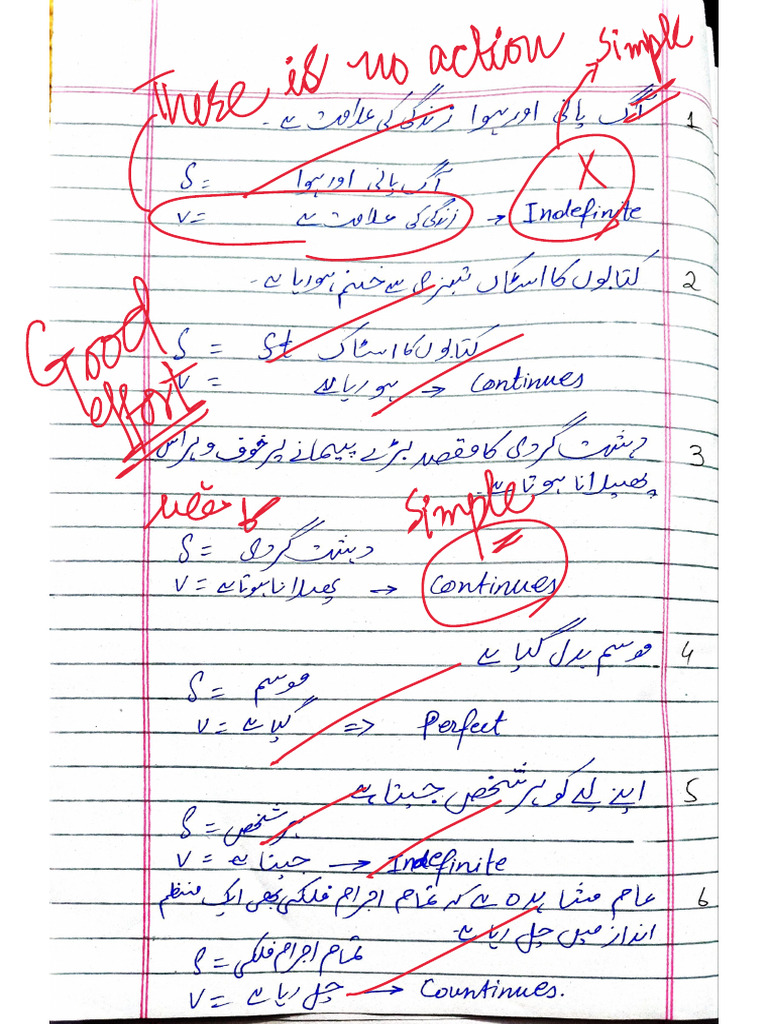 There is no action simple
1 آگ پانی اور ہوا زندگی کی علامت ہے۔
S = آگ پانی اور ہوا
V = زندگی کی علامت ہے → Indefinite X
2 کتابوں کا اسٹاک تیزی سے ختم ہو رہا ہے۔
Good effort
S = St کتابوں کا اسٹاک
V = ہو رہا ہے → Continues
3 دہشت گردی کا مقصد بڑے پیمانے پر خوف و ہراس
پھیلانا ہوتا ہے۔
کا مقصد simple
S = دہشت گردی
V = پھیلانا ہوتا ہے → Continues
4 موسم بدل گیا ہے
S = موسم
V = گیا ہے => Perfect
5 اپنے لیے کو ہر شخص جیتا ہے
S = ہر شخص
V = جیتا ہے → Indefinite
6 عام مشاہدہ ہے کہ تمام اجرام فلکی بھی ایک منظم
انداز میں چل رہا ہے۔
S = تمام اجرام فلکی
V = چل رہا ہے → Countinues.